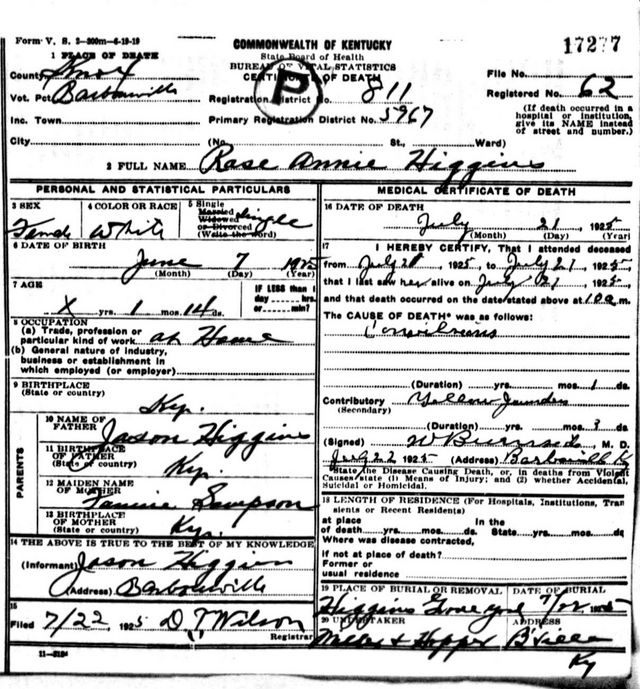 Form V. S. 2-200m-6-19-19
COMMONWEALTH OF KENTUCKY
State Board of Health
BUREAU OF VITAL STATISTICS
CERTIFICATE OF DEATH
17277
1 PLACE OF DEATH
County Knox
Vot. Pct. Barbourville
Inc. Town
City
P
Registration District No. 811
Primary Registration District No. 5967
(No. St., Ward)
File No.
Registered No. 62
(If death occurred in a
hospital or institution,
give its NAME instead
of street and number.)
2 FULL NAME Rose Annie Higgins
PERSONAL AND STATISTICAL PARTICULARS
3 SEX
Female
4 COLOR OR RACE
White
5 Single
Married
Widowed
or Divorced
(Write the word)
Single
6 DATE OF BIRTH
June 7 1925
(Month) (Day) (Year)
7 AGE
X yrs. 1 mos. 14 ds.
IF LESS than 1
day hrs.
or min.?
8 OCCUPATION
(a) Trade, profession or
particular kind of work at Home
(b) General nature of industry,
business or establishment in
which employed (or employer)
9 BIRTHPLACE
(State or country)
Ky.
PARENTS
10 NAME OF
FATHER
Jason Higgins
11 BIRTHPLACE
OF FATHER
(State or country)
Ky.
12 MAIDEN NAME
OF MOTHER
Sampson
13 BIRTHPLACE
OF MOTHER
(State or country)
Ky.
14 THE ABOVE IS TRUE TO THE BEST OF MY KNOWLEDGE
(Informant) Jason Higgins
(Address) Barbourville
15
Filed 7/22, 1925 D. T. Wilson
Registrar
11-3184
MEDICAL CERTIFICATE OF DEATH
16 DATE OF DEATH
July 21, 1925
(Month) (Day) (Year)
17 I HEREBY CERTIFY, That I attended deceased
from July 21, 1925 to July 21, 1925,
that I last saw her alive on July 21, 1925
and that death occurred on the date stated above at 10 a m.
The CAUSE OF DEATH* was as follows:
Convulsions
(Duration) yrs. mos. 1 ds.
Contributory Yellow Jaundes
(Secondary)
(Duration) yrs. mos. 3 ds.
(Signed) W Burnside, M. D.
July 22 1925 (Address) Barbourvill Ky
*State the Disease Causing Death, or, in deaths from Violent
Causes state (1) Means of Injury; and (2) whether Accidental,
Suicidal or Homicidal.
18 LENGTH OF RESIDENCE (For Hospitals, Institutions, Tran
sients or Recent Residents)
at place In the
of death yrs. mos. ds. State yrs. mos. ds.
Where was disease contracted,
if not at place of death?
Former or
usual residence
19 PLACE OF BURIAL OR REMOVAL
Higgins Grave yard
DATE OF BURIAL
7/22 1925
20 UNDERTAKER
& Hopper
ADDRESS
B'Ville
Ky